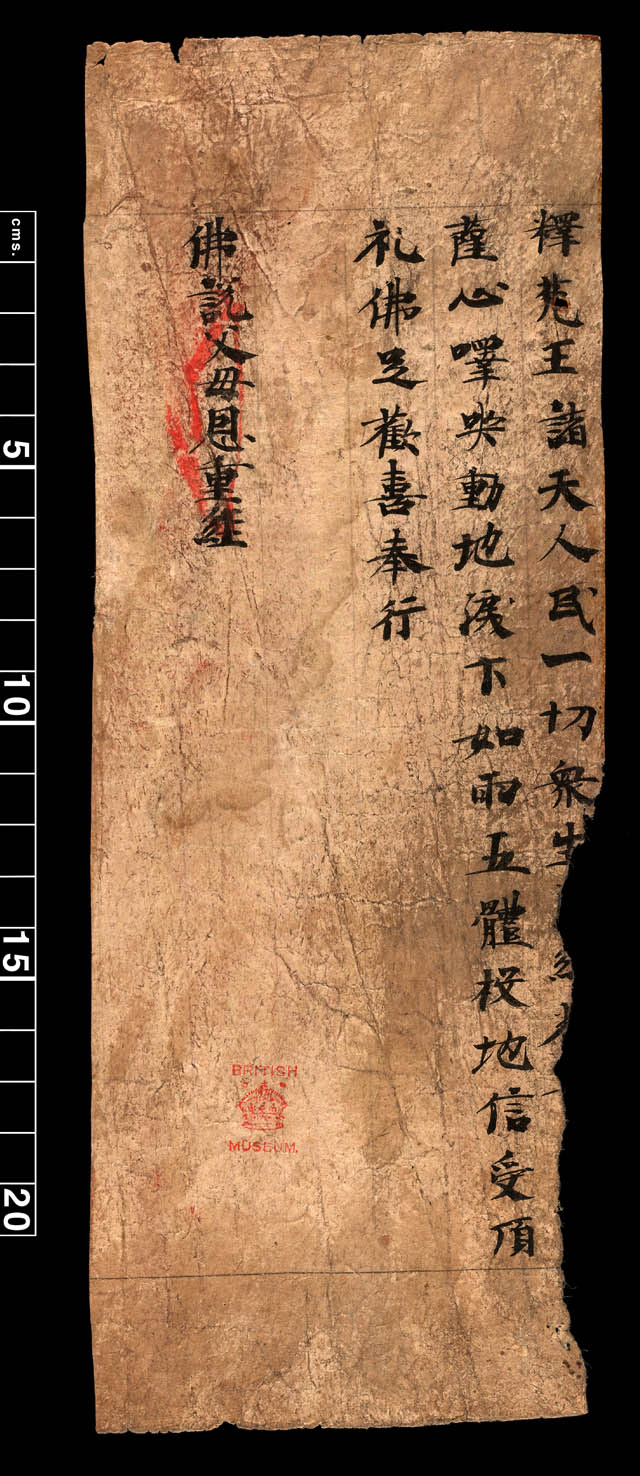 釋梵王諸天人民一切衆生
薩心嘷哭動地淚下如雨五體投地信受頂
礼佛足歡喜奉行
佛說父母恩重經
BRITISH
MUSEUM.
cms.
5
10
15
20